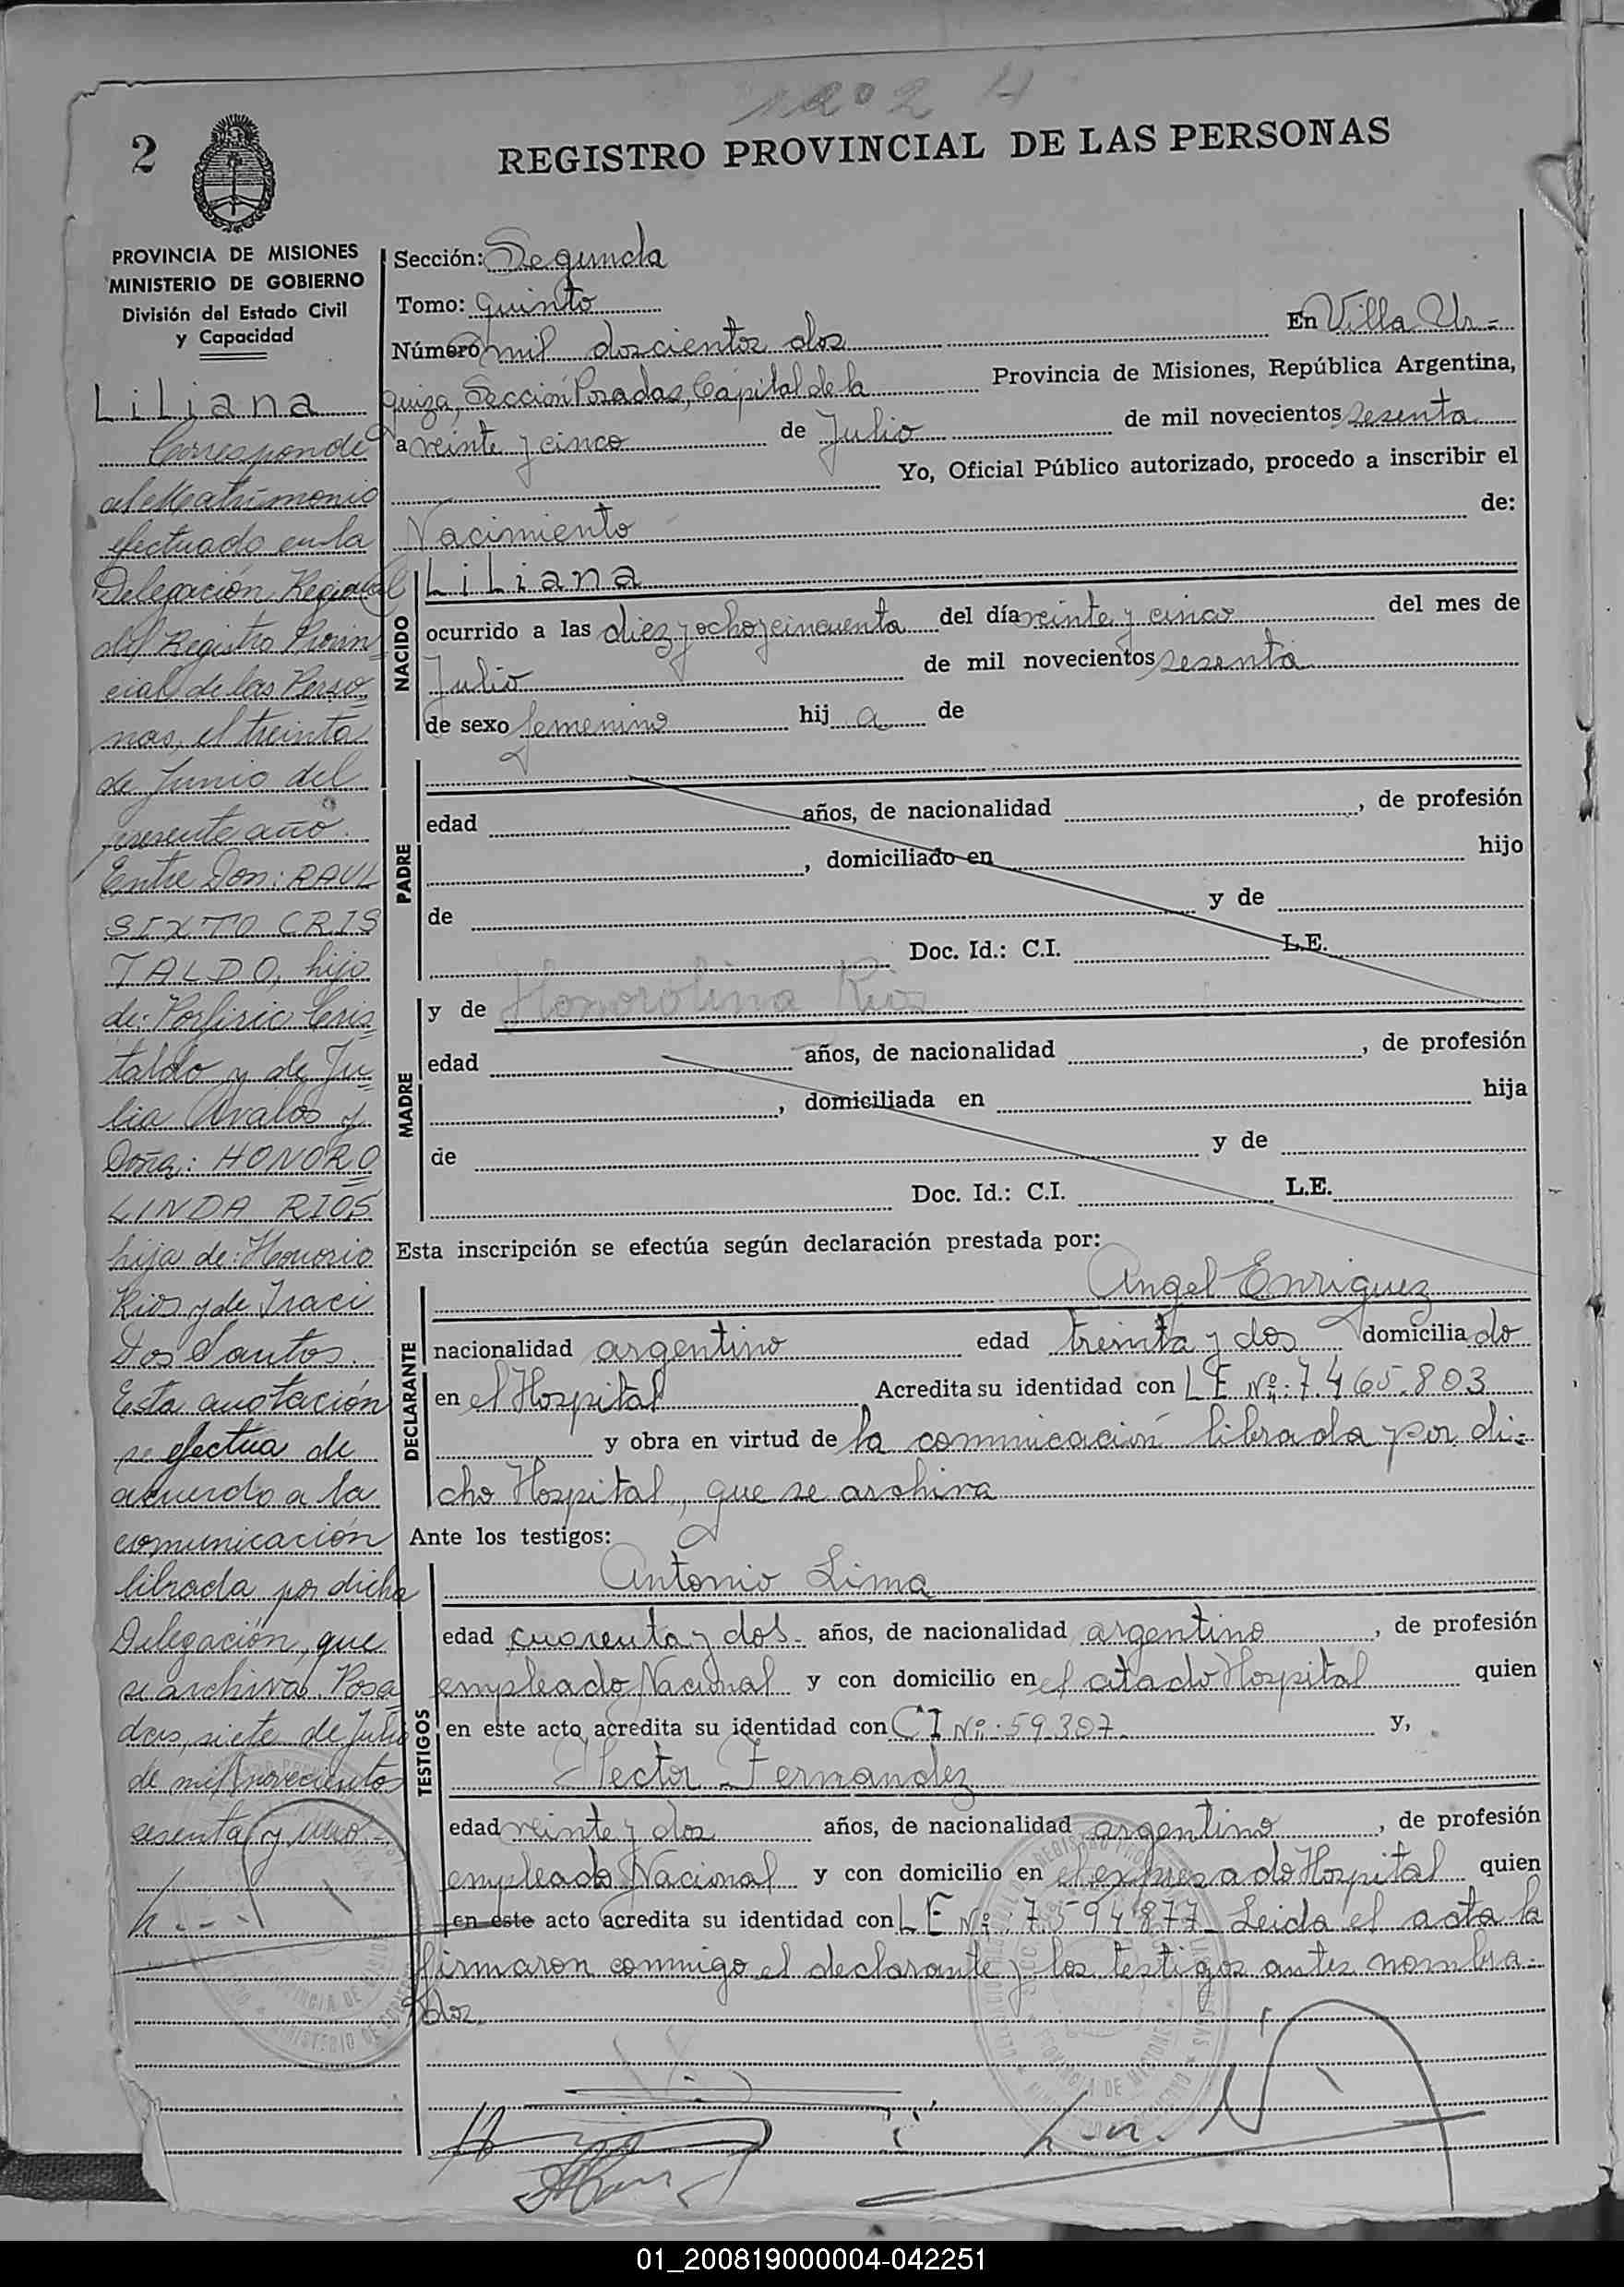 1202 H
2
REGISTRO PROVINCIAL DE LAS PERSONAS
PROVINCIA DE MISIONES
MINISTERIO DE GOBIERNO
División del Estado Civil
y Capacidad
Liliana
Corresponde
al Matrimonio
efectuado en la
Delegación Regional
del Registro Provin=
cial de las Perso=
nas, el treinta
de Junio del
presente año.
Entre Don: RAUL
SIXTO CRIS=
TALDO, hijo
de: Porfirio Cris=
taldo y de Ju=
lia Avalos y
Doña: HONORO=
LINDA RIOS
hija de: Honorio
Rios y de Iraci
Dos Santos.
Esta anotación
se efectua de
acuerdo a la
comunicación
librada por dicha
Delegación, que
se archiva. Posa=
das, siete de Julio
de mil novecientos
sesenta y uno.-
Sección: Segunda
Tomo: quinto
Número mil doscientos dos En Villa Ur=
quiza, Sección Posadas, Capital de la Provincia de Misiones, República Argentina,
a veinte y cinco de Julio de mil novecientos sesenta
Yo, Oficial Público autorizado, procedo a inscribir el
Nacimiento de:
NACIDO
Liliana
ocurrido a las diez y ocho y cincuenta del día veinte y cinco del mes de
Julio de mil novecientos sesenta
de sexo femenino hij a de
PADRE
edad años, de nacionalidad , de profesión
, domiciliado en hijo
de y de
Doc. Id.: C.I. L.E.
MADRE
y de Honorolina Rios
edad años, de nacionalidad , de profesión
, domiciliada en hija
de y de
Doc. Id.: C.I. L.E.
Esta inscripción se efectúa según declaración prestada por:
DECLARANTE
Angel Enriquez
nacionalidad argentino edad treinta y dos domicilia do
en el Hospital Acredita su identidad con L E Nº: 7.465.803
y obra en virtud de la comunicación librada por di=
cho Hospital, que se archiva
Ante los testigos:
TESTIGOS
Antonio Lima
edad cuarenta y dos- años, de nacionalidad argentino , de profesión
empleado Nacional y con domicilio en el citado Hospital quien
en este acto acredita su identidad con C I Nº: 59.307 y,
Hector Fernandez
edad veinte y dos años, de nacionalidad argentino , de profesión
empleado Nacional y con domicilio en el expresado Hospital quien
en este acto acredita su identidad con L E Nº: 7.594.877- Leida el acta la
firmaron conmigo el declarante y los testigos antes nombra=
dos.
01_200819000004-042251